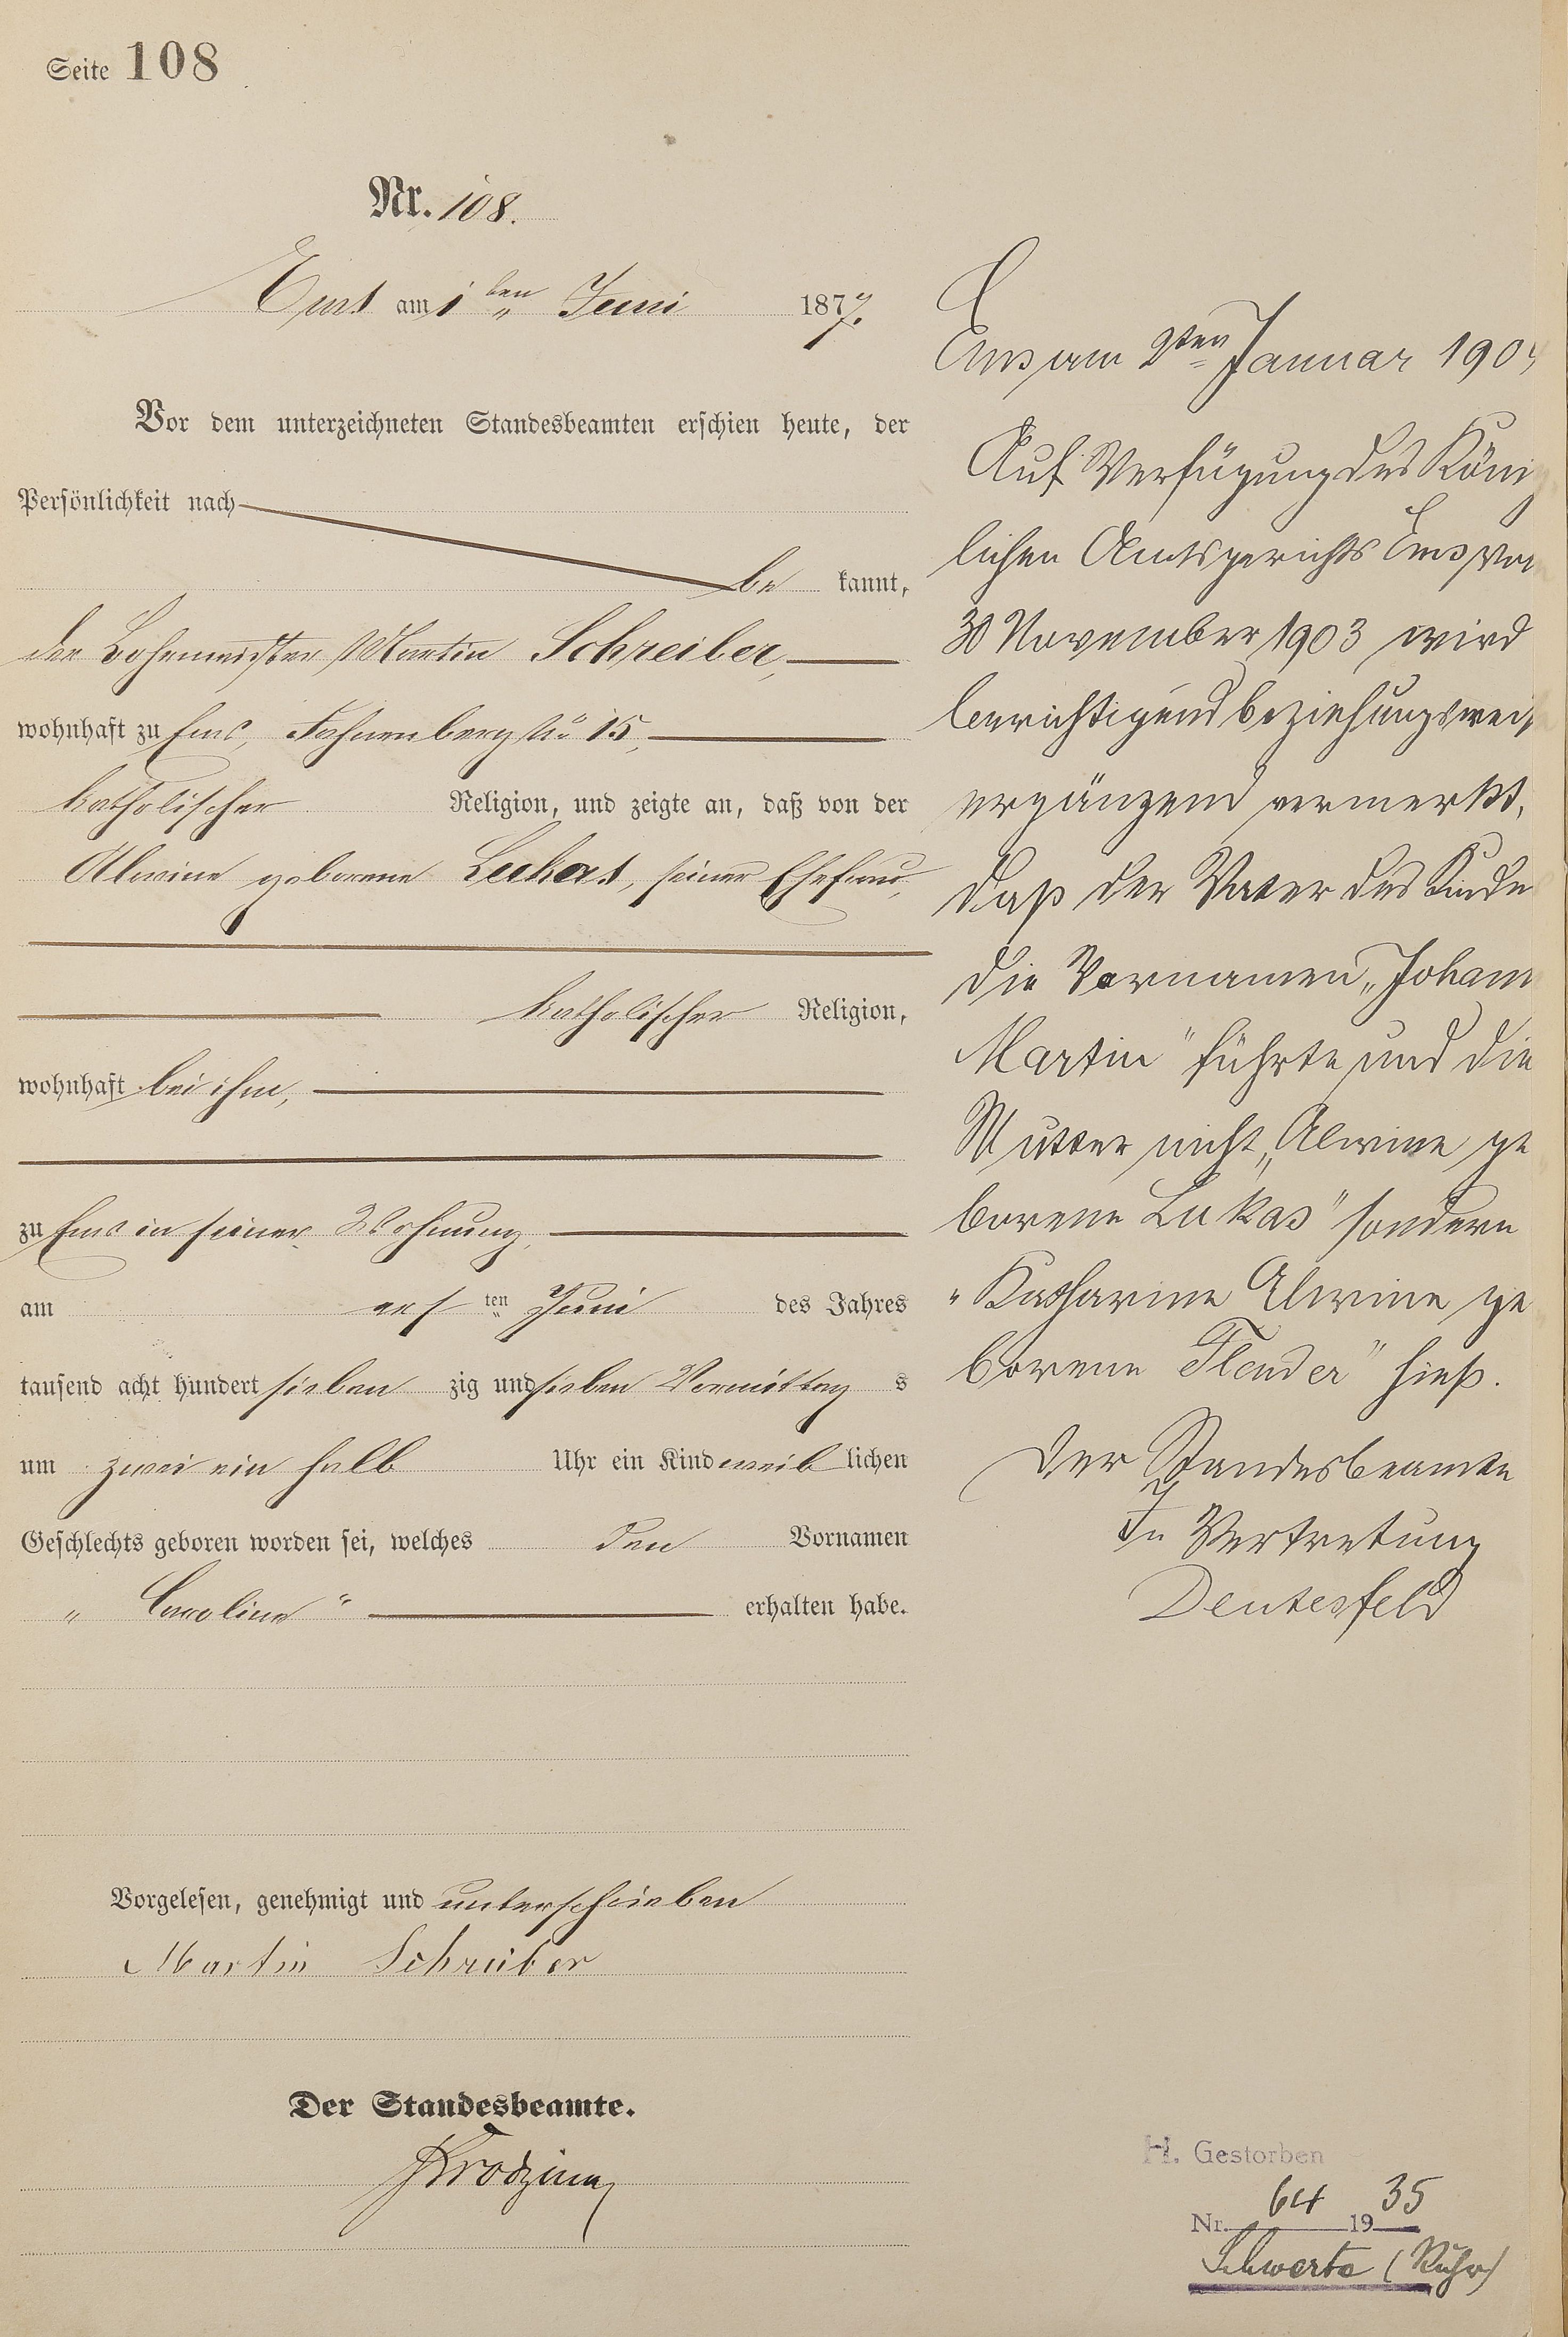 Seite 108
Nr. 108.
Ems am 1ten Juni 1877.
Vor dem unterzeichneten Standesbeamten erschien heute, der
Persönlichkeit nach
be kannt,
der Martin Schreiber,
wohnhaft zu Ems, No 15,
katholischer Religion, und zeigte an, daß von der
Alwine geborene Luckas, seiner Ehefrau,
katholischer Religion,
wohnhaft bei ihm,
zu Ems in seiner Wohnung,
am ersten Juni des Jahres
tausend acht hundert sieben zig und sieben Vormittag s
um zwei ein halb Uhr ein Kind weib lichen
Geschlechts geboren worden sei, welches den Vornamen
„Caroline“ erhalten habe.
Vorgelesen, genehmigt und unterschrieben
Martin Schreiber
Der Standesbeamte.
Ems am 2ten Januar 1904
Auf Verfügung des König
lichen Amtsgerichts Ems vom
30 November 1903 wird
berichtigend beziehungsweise
ergänzend vermerkt,
daß der Vater des Kindes
die Vornamen „Johann
Martin“ führte und die
Mutter nicht „Alwine ge
borene Lukas“ sondern
„Katharine Alwine ge
borene Flender“ hieß.
Der Standesbeamte
In Vertretung
Deutesfeld
H. Gestorben
Nr. 64 1935
Schwerte (Ruhr)